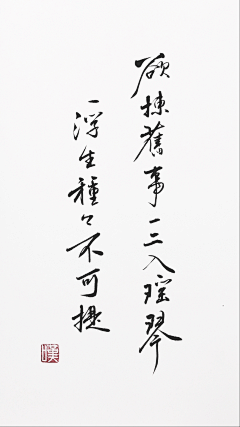 欲揀舊事一二入瑶琴
一浮生種々不可提
嘆